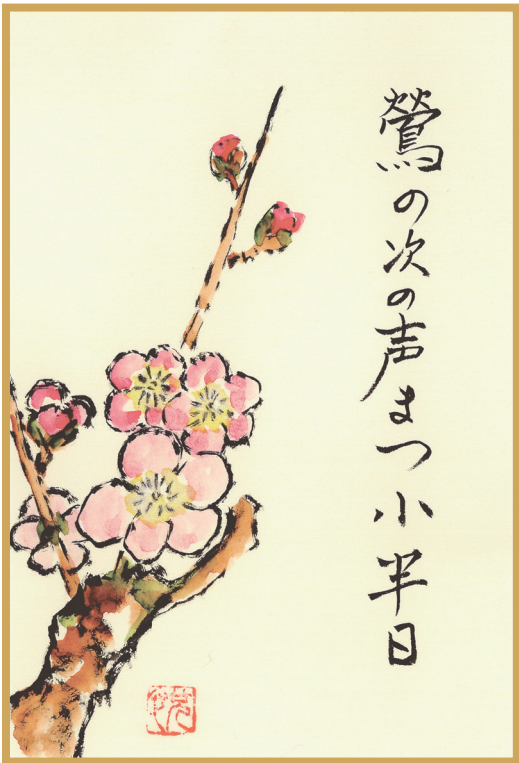 鶯の次の声まつ小半日